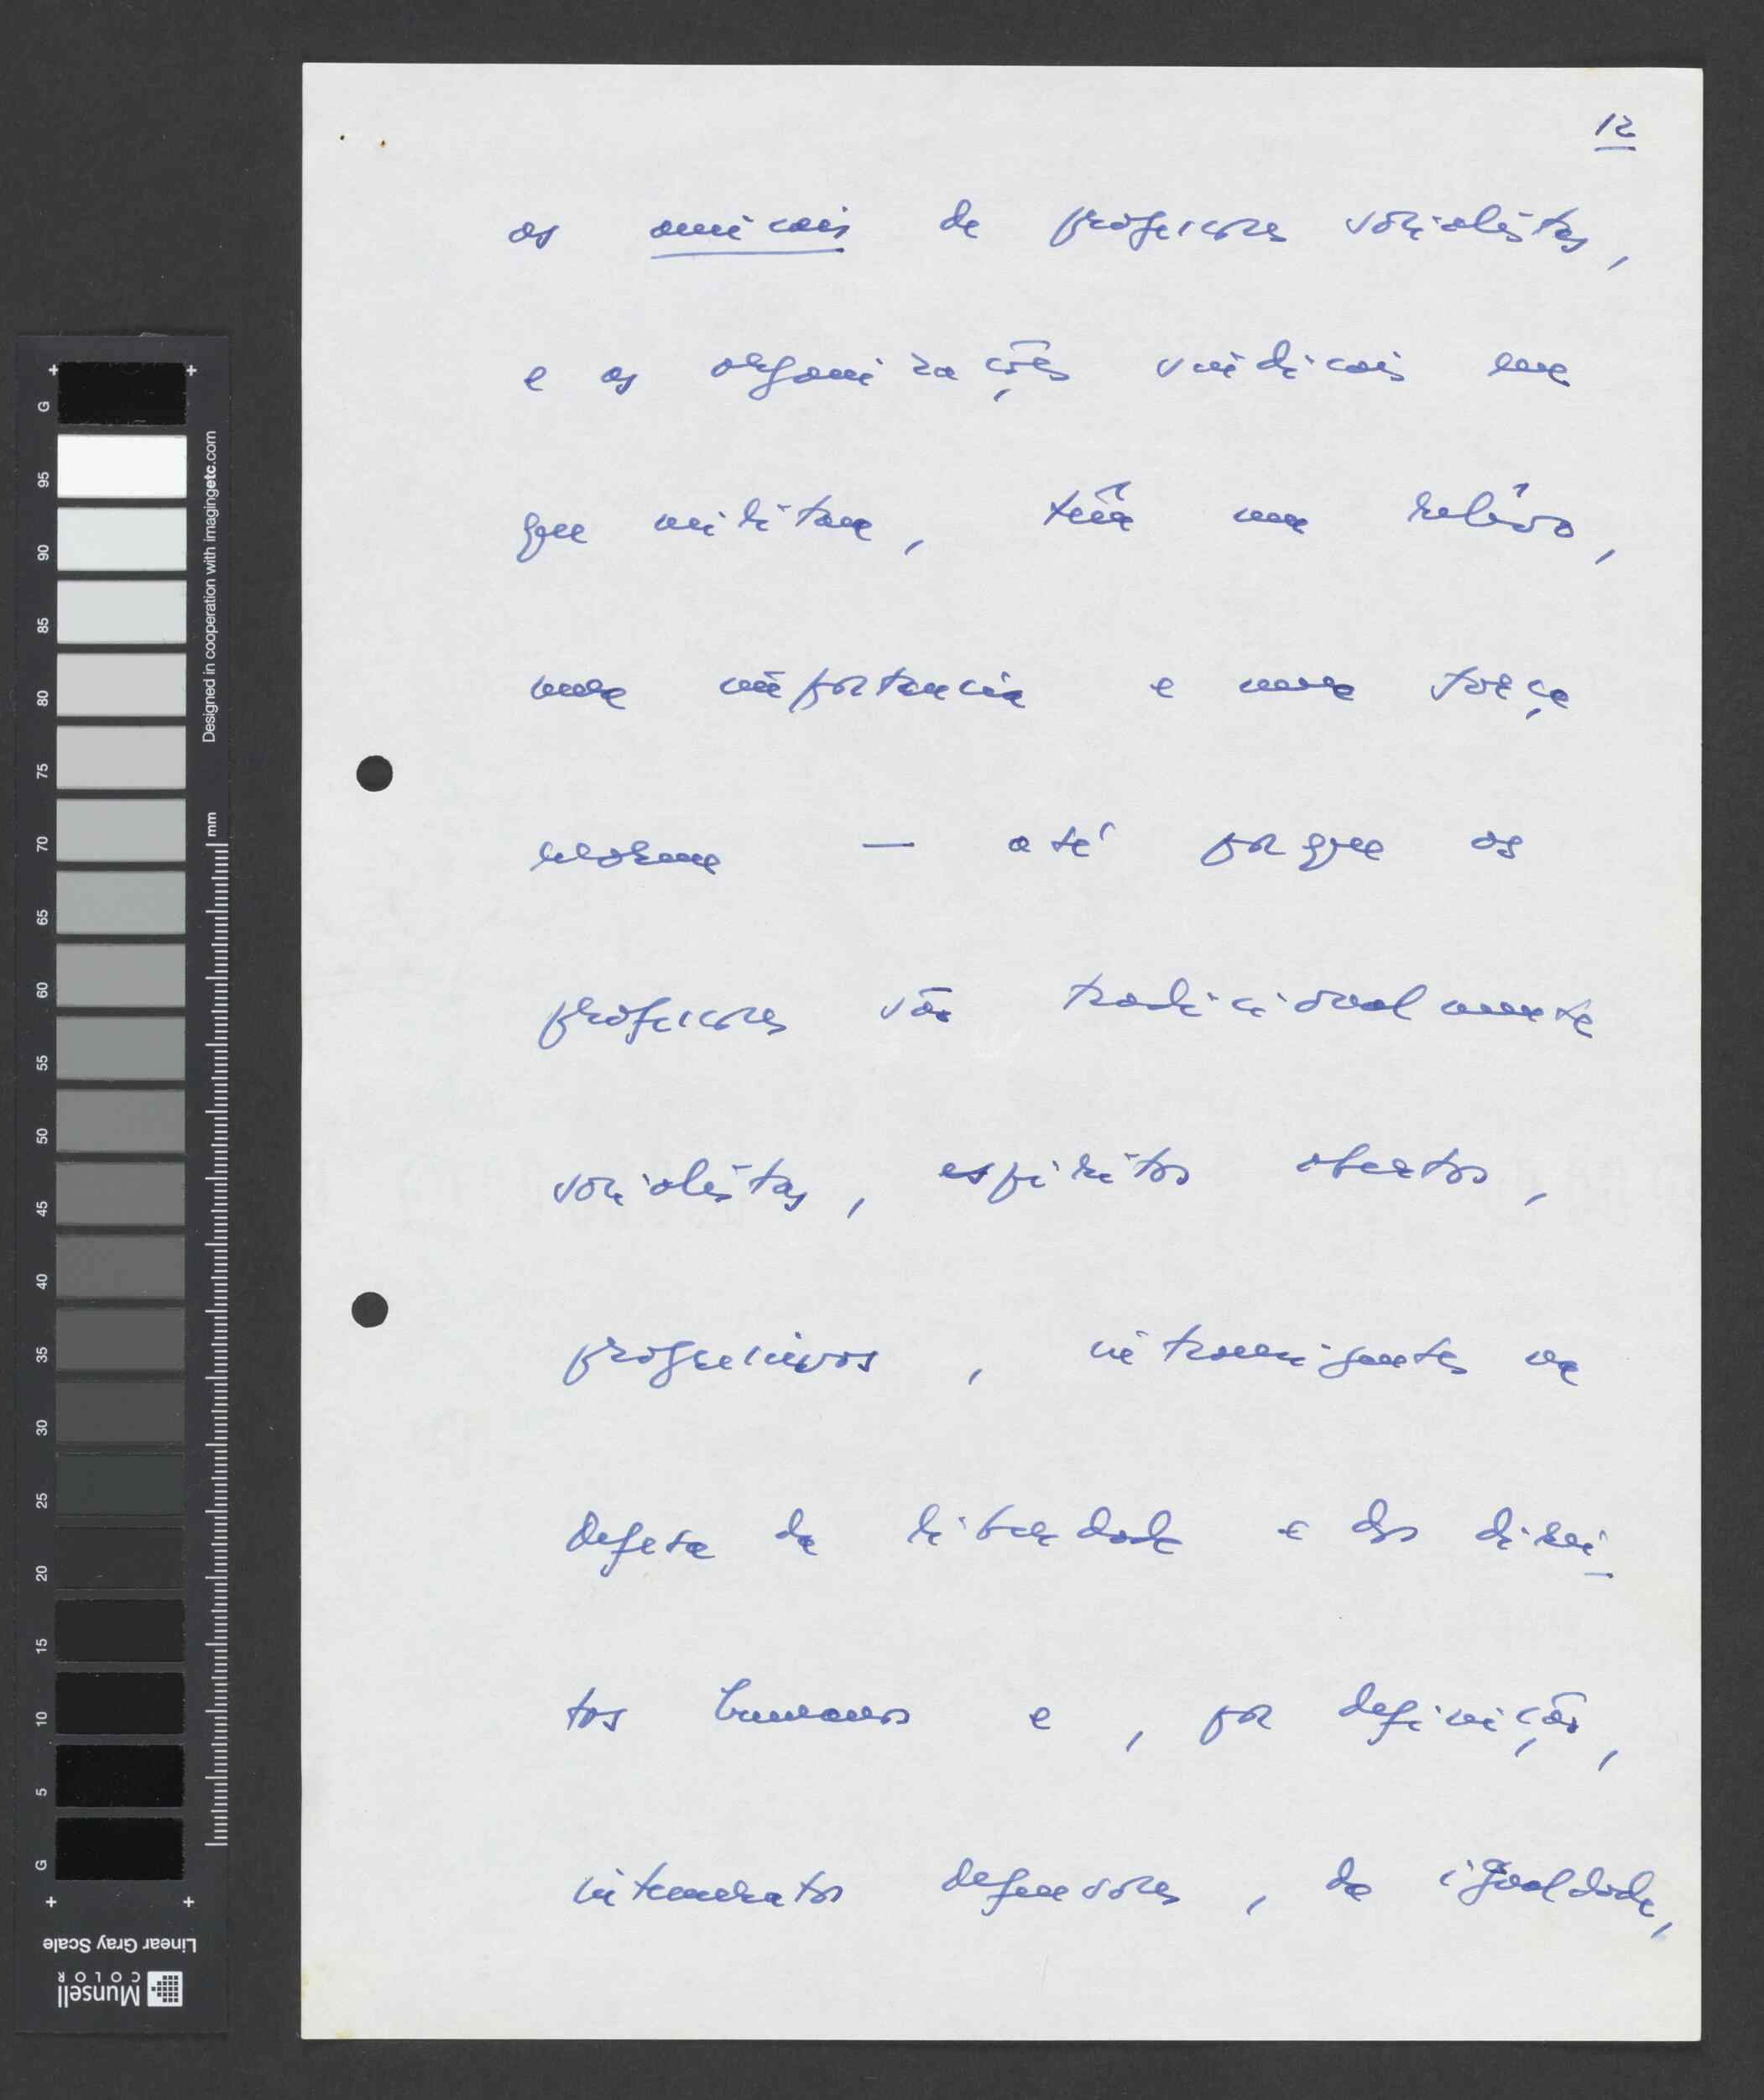 12
as amicais de professores socialistas,
e as organizações sindicais em
que militam, têm um relêvo,
uma importancia e uma força
enorme — até porque os
professores são tradicionalmente
socialistas, espiritos abertos,
progressivos, intransigentes na
defesa da liberdade e dos direi-
tos humanos e, por definição,
intemeratos defensores, da igualdade,
G
95
90
85
80
75
70
65
60
55
50
45
40
35
30
25
20
15
10
5
G
mm
Designed in cooperation with imagingetc.com
Linear Gray Scale
Munsell
COLOR